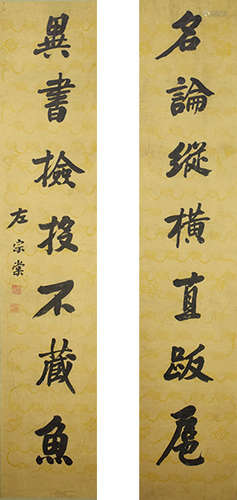 名論縱橫直跋扈
異書檢校不藏魚
左宗棠